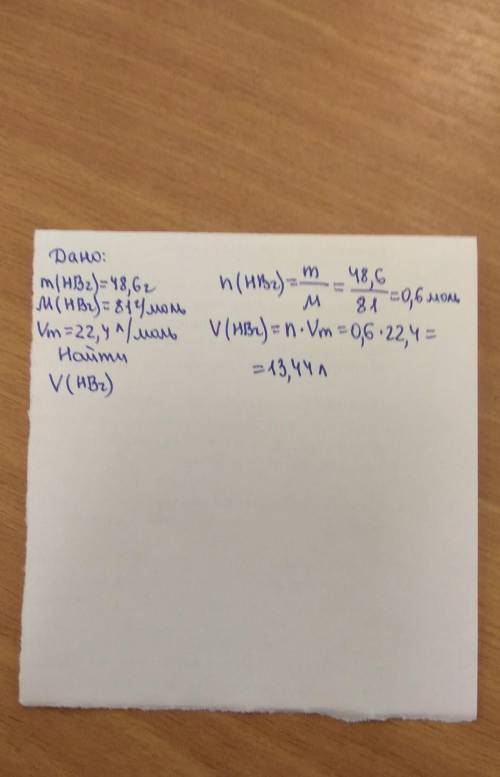 Дано:
m(HBr)=48,6г
M(HBr)=81г/моль
Vm=22,4 л/моль
Найти
V(HBr)
n(HBr)=m/M=48,6/81=0,6 моль
V(HBr)=n·Vm=0,6·22,4=
=13,44л